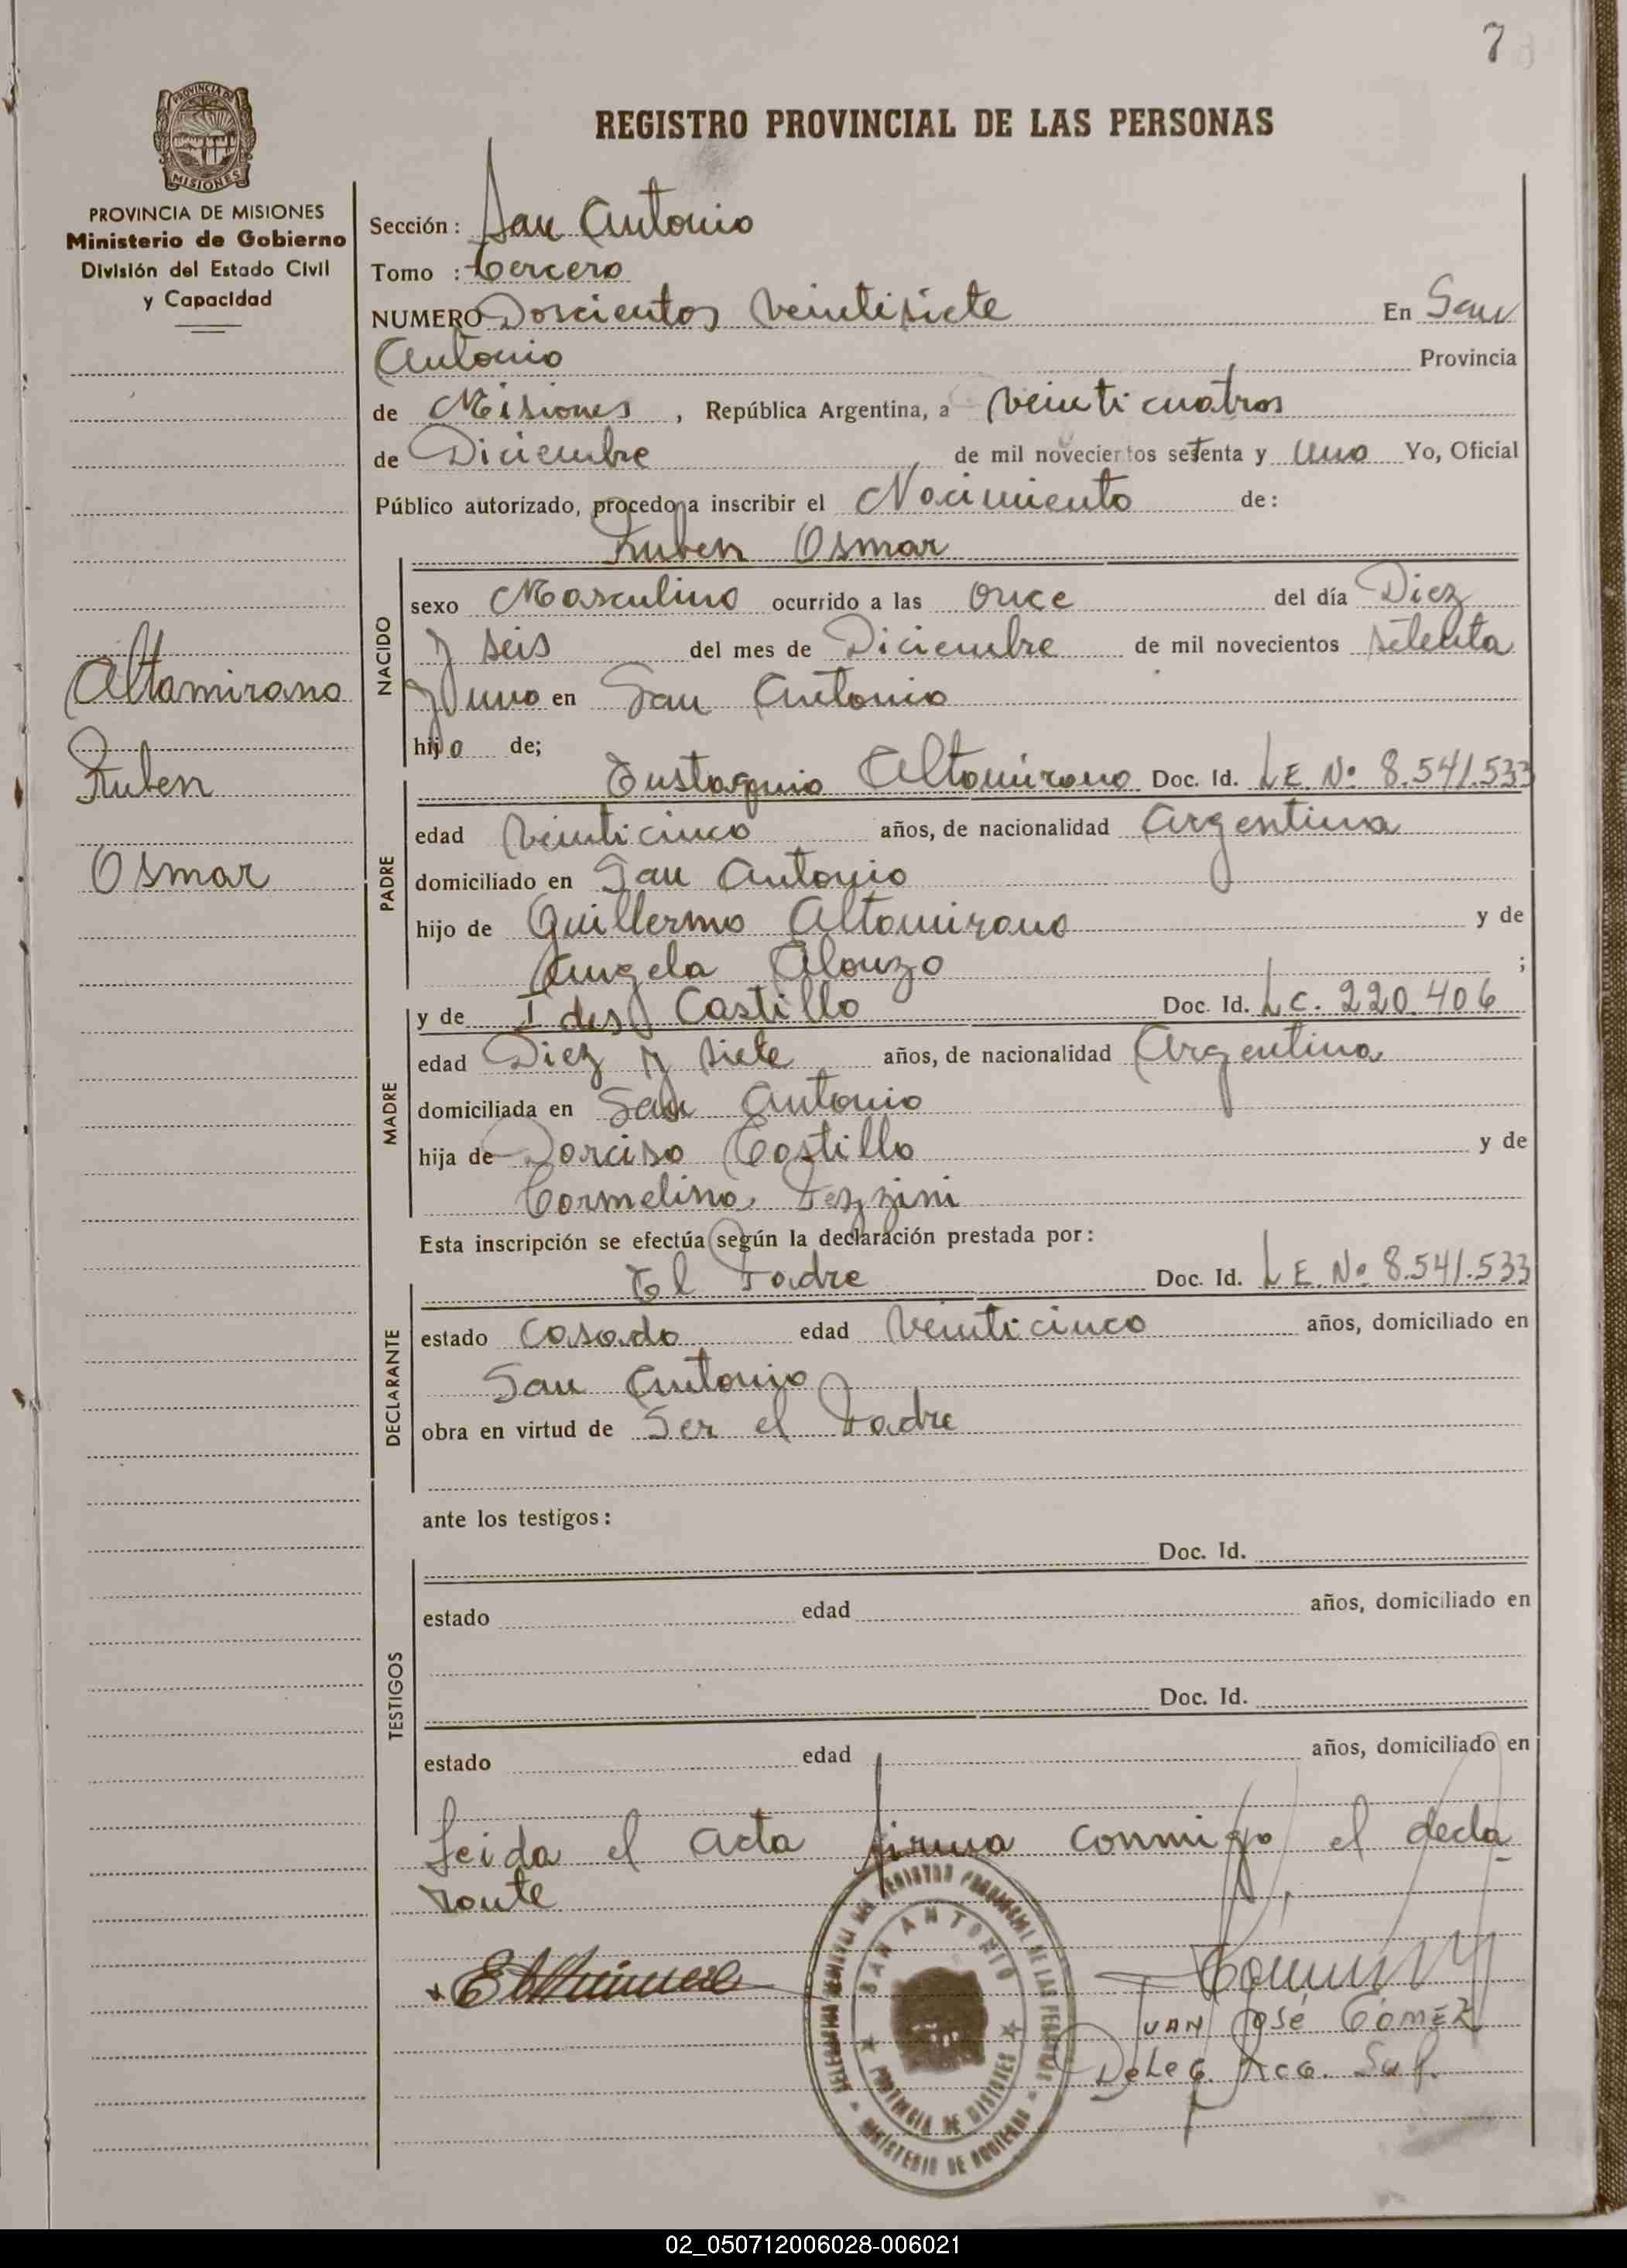 7
REGISTRO PROVINCIAL DE LAS PERSONAS
PROVINCIA DE
MISIONES
PROVINCIA DE MISIONES
Ministerio de Gobierno
División del Estado Civil
y Capacidad
Altamirano
Ruben
Osmar
Sección: San Antonio
Tomo : tercero
NUMERO Doscientos veintisiete En San
Antonio Provincia
de Misiones, República Argentina, a veinticuatros
de Diciembre de mil novecientos setenta y uno Yo, Oficial
Público autorizado, procedo a inscribir el Nacimiento de:
Ruben Osmar
NACIDO
sexo Masculino ocurrido a las once del día Diez
y seis del mes de Diciembre de mil novecientos setenta
y uno en San Antonio
hijo de;
PADRE
Eustaquio Altamirano Doc. Id. L E. Nº 8.541.533
edad veinticinco años, de nacionalidad Argentina
domiciliado en San Antonio
hijo de Guillermo Altamirano y de
Angela Alonzo ;
MADRE
y de Castillo Doc. Id. L C. 220.406
edad Diez y siete años, de nacionalidad Argentina
domiciliada en San Antonio
hija de Dorciso Castillo y de
Carmelina Pezzini
Esta inscripción se efectúa según la declaración prestada por:
DECLARANTE
El Padre Doc. Id. L E. Nº 8.541.533
estado Casado edad veinticinco años, domiciliado en
San Antonio
obra en virtud de Ser el Padre
ante los testigos:
TESTIGOS
Doc. Id.
estado edad años, domiciliado en
Doc. Id.
estado edad años, domiciliado en
Leida el acta firma conmigo el decla
rante
SAN ANTONIO
PROVINCIA DE MISIONES
MINISTERIO DE GOBIERNO
JUAN José GOMEZ
DeLeG. Rcg. Sup.
02_050712006028-006021